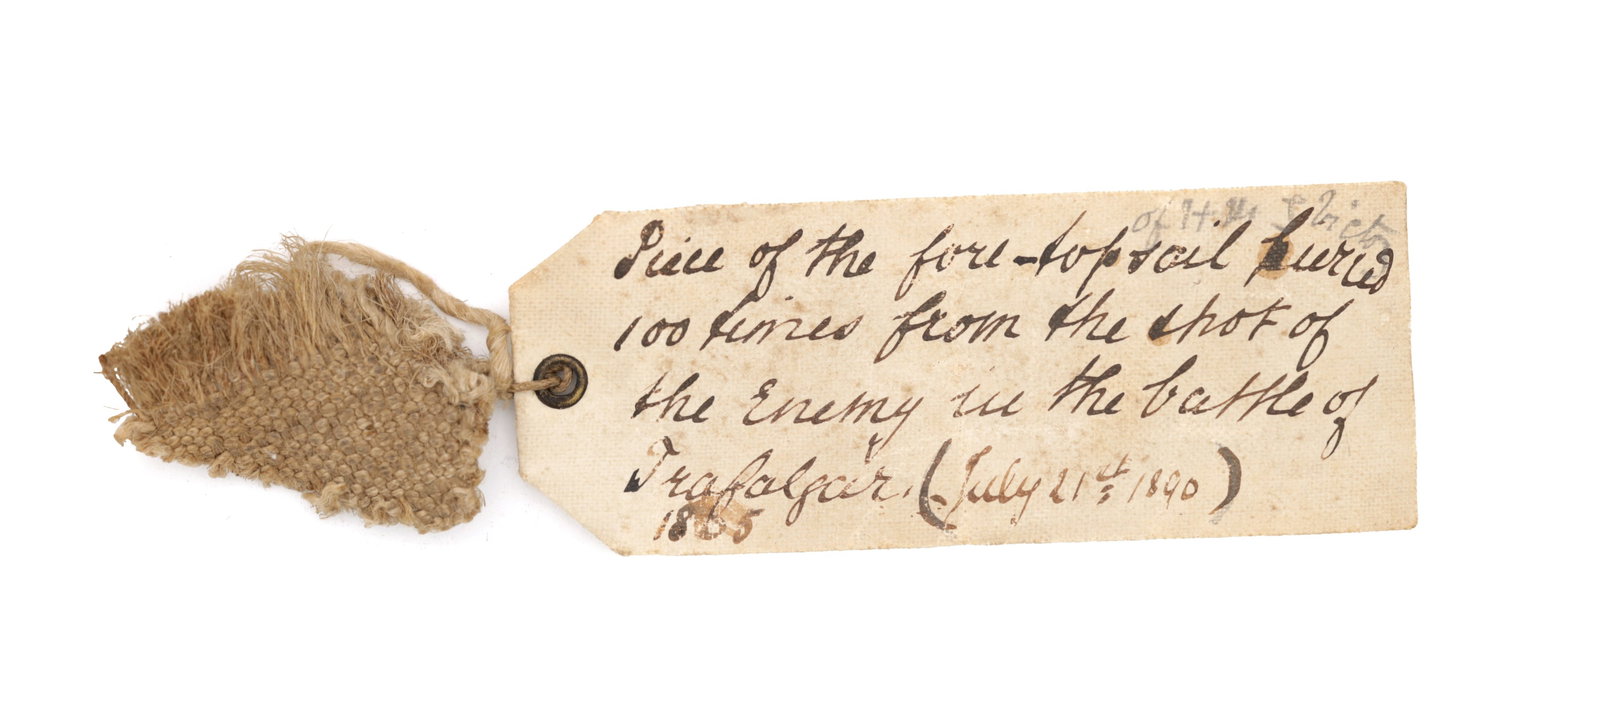 of H.M.S Victo
Piece of the fore-topsail pierced
100 times from the shot of
the Enemy in the battle of
Trafalgar. (July 21st, 1890)
1805